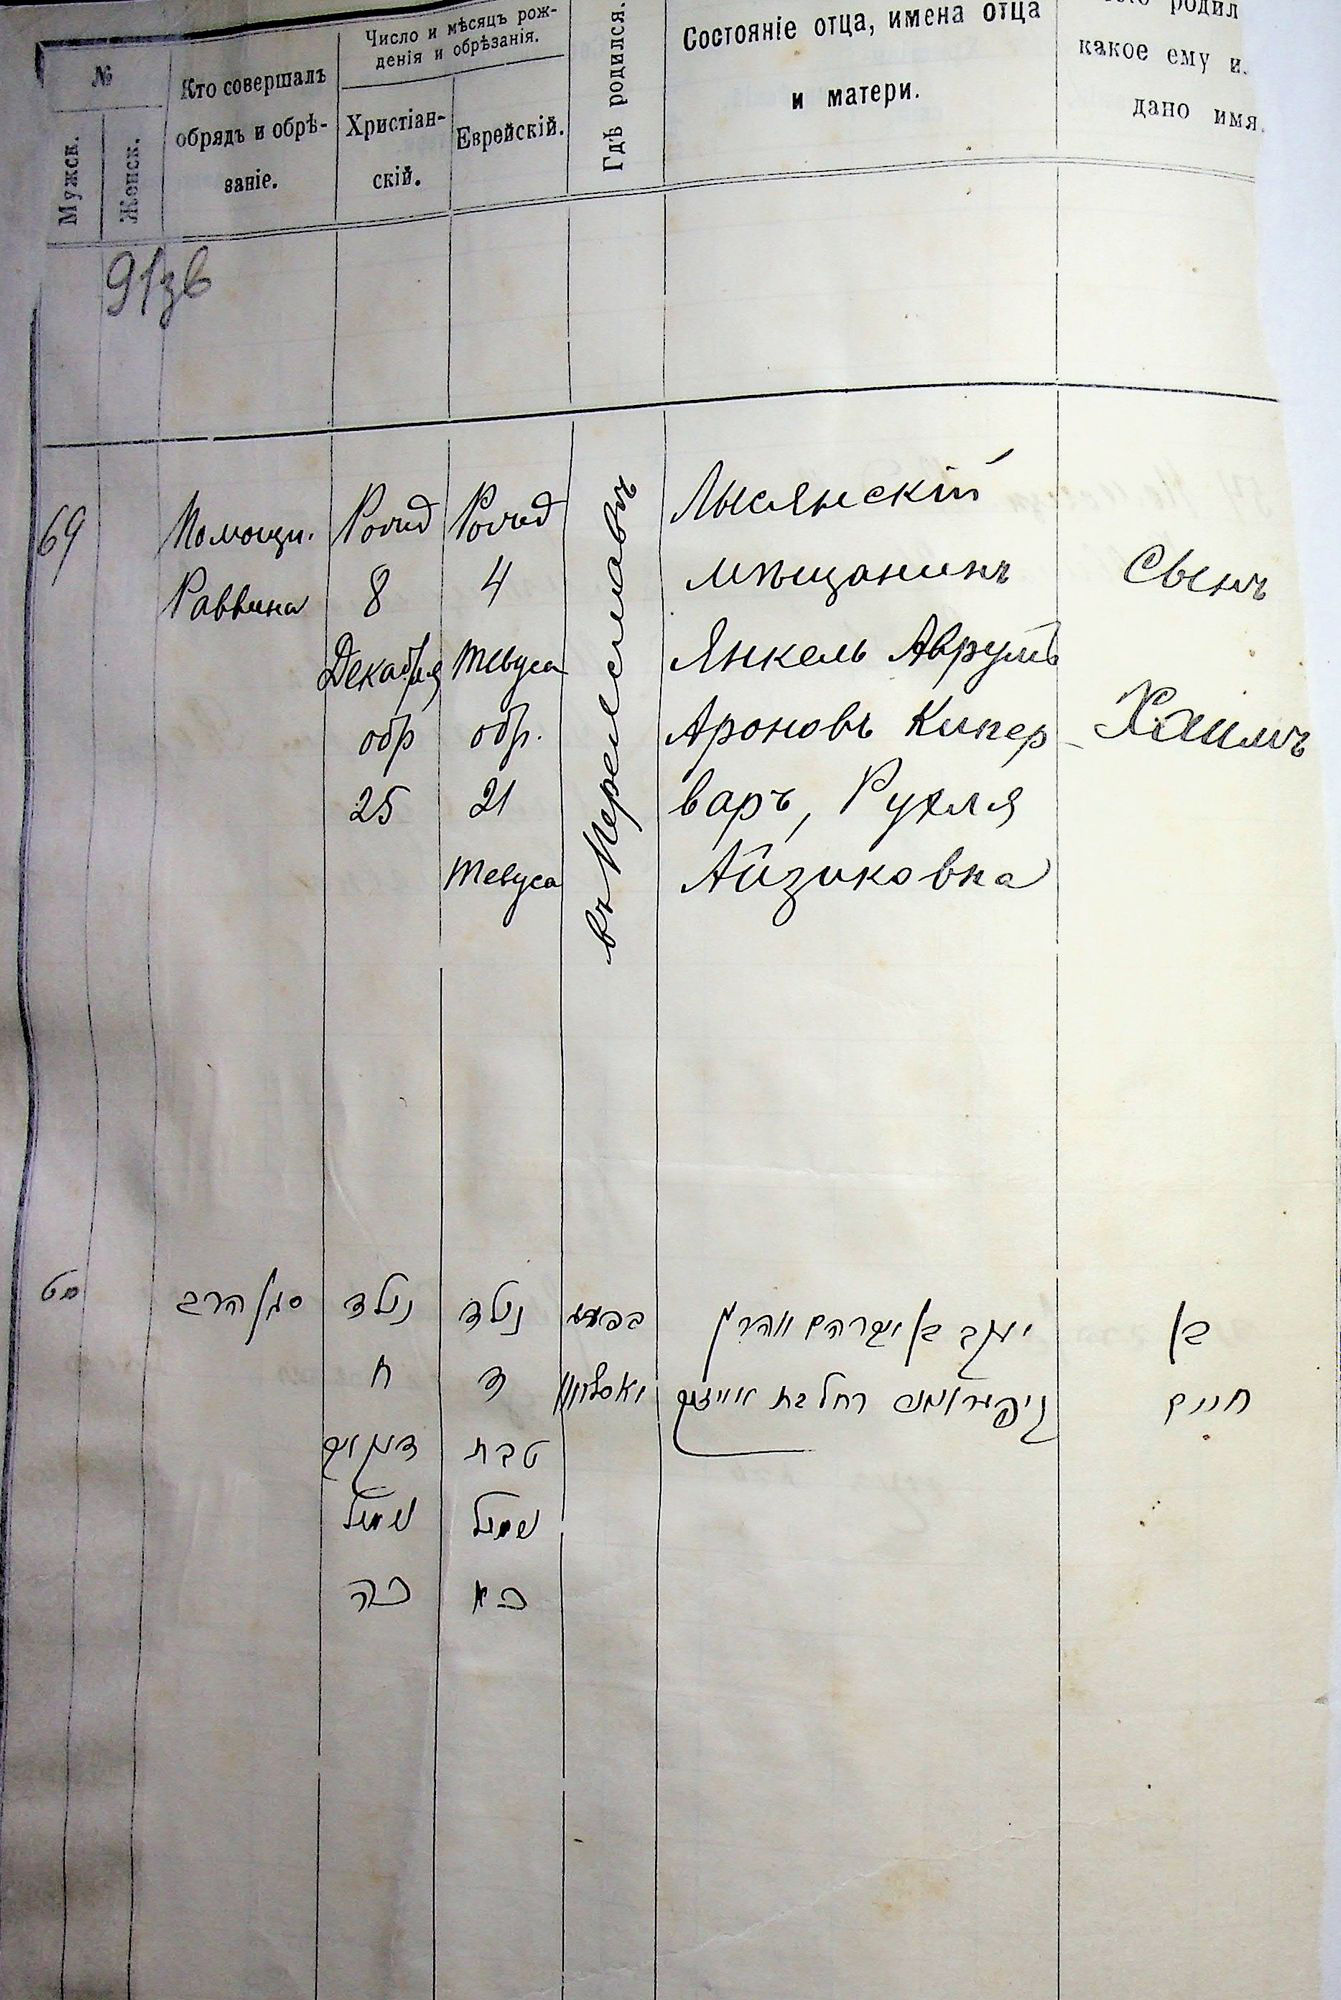 №
Мужск.
Женск.
Кто совершалъ
обрядъ и обрѣ-
заніе.
Число и мѣсяцъ рож-
денія и обрѣзанія.
Христіан-
скій.
Еврейскій.
Гдѣ родился.
Состояніе отца, имена отца
и матери.
родил
какое ему и
дано имя.
91зв
69
Помощн.
Раввина
Ролид
8
Декабря
обр
25
Ролид
4
Тевуса
обр.
21
Тевуса
въ Переяславѣ
Лысянскій
мѣщанинъ
Янкель Аврумъ
Ароновъ Кипер-
варъ, Рухля
Айзиковна
Сынъ
Хаимъ
סט
סגן הרב
נולד
ח
דעקאבר
נימול
כה
נולד
ד
טבת
נימול
כא
יעקב בן אברהם אהרן
רחל בת אייזיק
בן
חיים